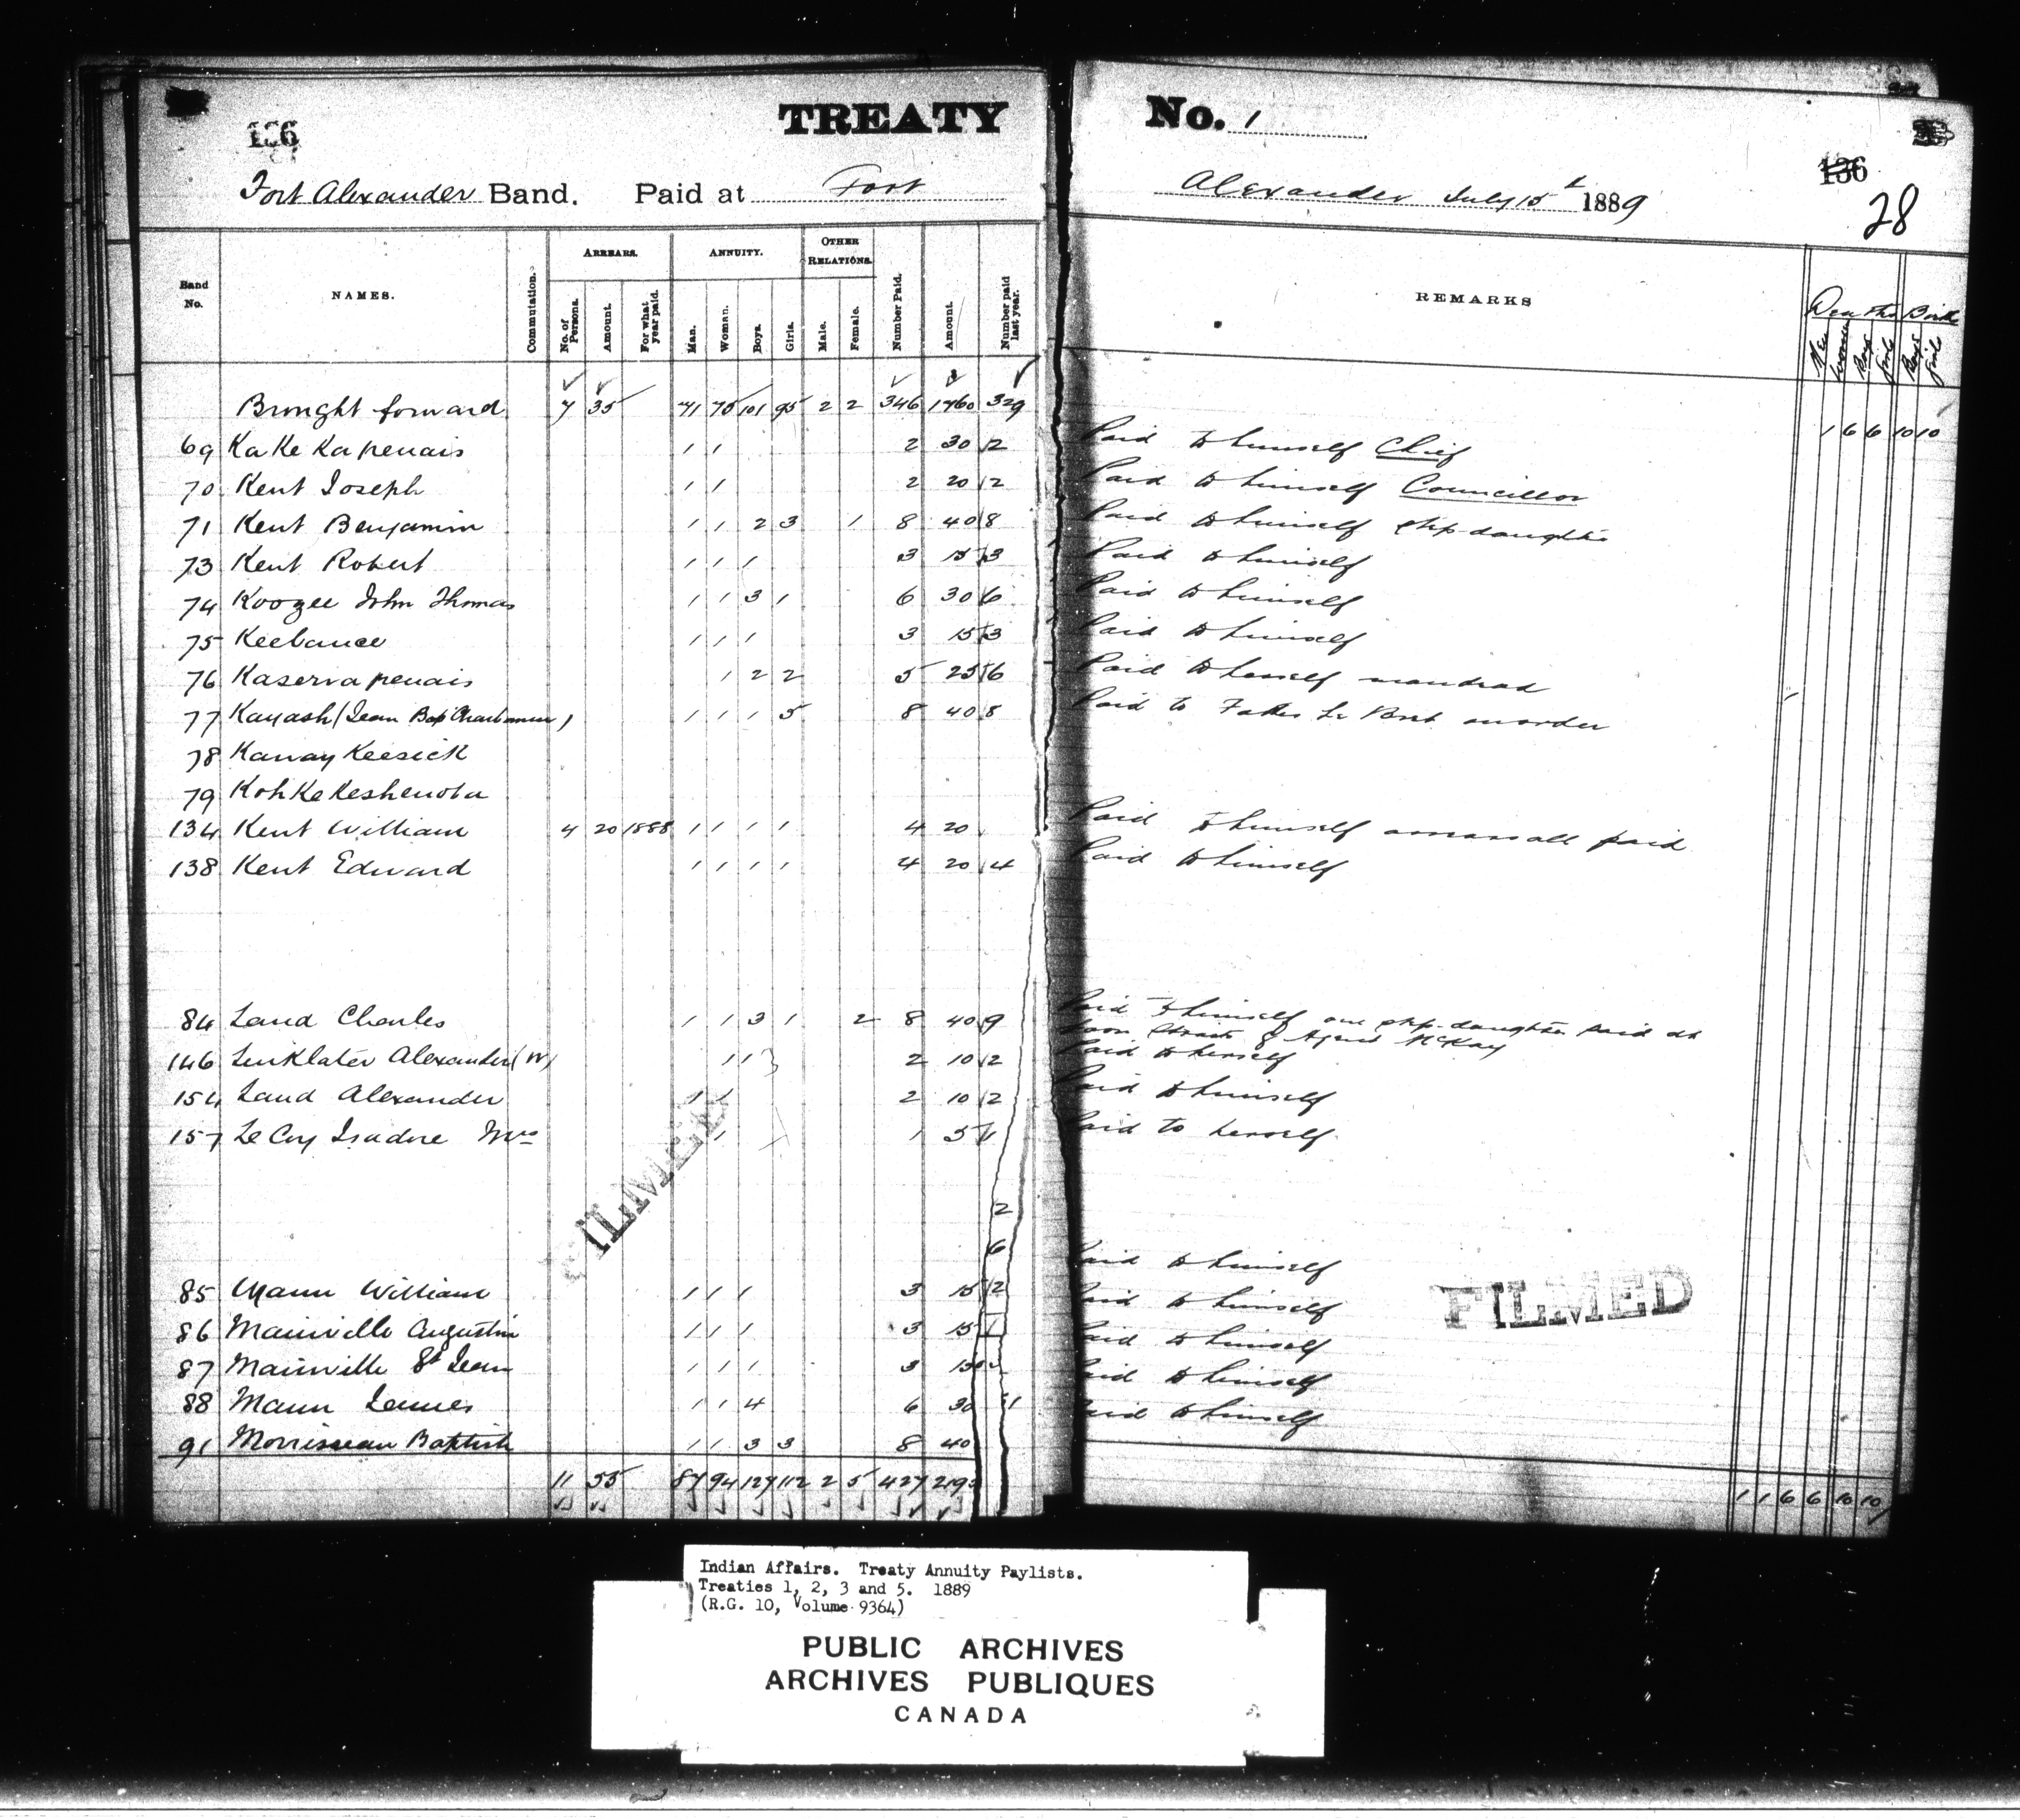 TREATY No. 1
136
136
28
Fort Alexander Band. Paid at Fort Alexander July 15t 1889
Band No. NAMES. Commutation. ARREARS. No. of Persons. Amount. For what year paid. ANNUITY. Man. Woman. Boys. Girls. OTHER RELATIONS. Male. Female. Number Paid. Amount. Number paid last year. REMARKS Deaths Births Men Women Boys Girls Boys Girls
Brought forward 7 35 71 75 101 95 2 2 346 1760 329 1 6 6 10 10
69 Ka Ke Ka penais 1 1 2 30 2 Paid to himself Chief
70 Kent Joseph 1 1 2 20 2 Paid to himself Councillor
71 Kent Benjamin 1 1 2 3 1 8 40 8 Paid to himself step-daughter
73 Kent Robert 1 1 1 3 15 3 Paid to himself
74 Koozee John Thomas 1 1 3 1 6 30 6 Paid to himself
75 Keebance 1 1 1 3 15 3 Paid to himself
76 Kaserva penais 1 2 2 5 25 6 Paid to herself man dead 1
77 Kayash (Jean Bap Charbonneau) 1 1 1 5 8 40 8 Paid to Father on order
78 Kanay Keesick
79 Koh Ke Keshenota
134 Kent William 4 20 1888 1 1 1 1 4 20 Paid to himself arrears all paid
138 Kent Edward 1 1 1 1 4 20 4 Paid to himself
84 Land Charles 1 1 3 1 2 8 40 9 Paid to himself one step-daughter paid at
Loon Straits & Agent McKay
146 Linklater Alexander (W) 1 1 2 10 2 Paid to herself
154 Land Alexander 1 1 2 10 2 Paid to himself
157 Le Coy Isadore Mrs 1 1 5 1 Paid to herself
2
6
85 Mann William 1 1 1 3 15 2 Paid to himself
86 Mainville Augustin 1 1 1 3 15 1 Paid to himself
87 Mainville St Jean 1 1 1 3 15 Paid to himself
88 Mann James 1 1 4 6 30 Paid to himself
91 Morrisseau Baptiste 1 1 3 3 8 40 Paid to himself
11 55 87 94 127 112 2 5 427 219 1 1 6 6 10 10
FILMED
FILMED
Indian Affairs. Treaty Annuity Paylists.
Treaties 1, 2, 3 and 5. 1889
(R.G. 10, Volume 9364)
PUBLIC ARCHIVES
ARCHIVES PUBLIQUES
CANADA